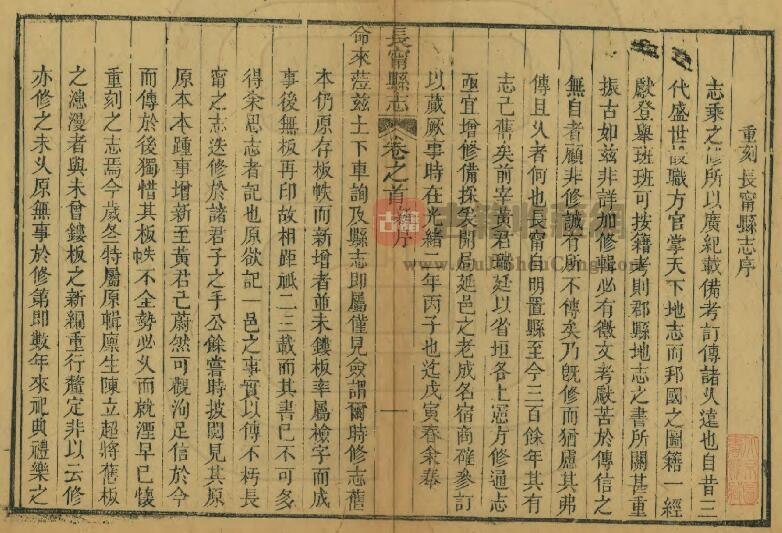 重刻長甯縣志序
志乘之修所以廣紀載備考訂傳諸久遠也自昔三
代盛世設職方官掌天下地志而邦國之圖籍一經
厥登舉班班可按籍考則郡縣地志之書所關甚重
振古如兹非詳加修輯必有徵文考獻苦於傳信之
無自者顧非修誠有所不傳矣乃旣修而猶慮其弗
傳且久者何也長甯自明置縣至今三百餘年其有
志已舊矣前宰黃君瑞廷以省垣各上憲方修通志
亟宜增修備採爰開局延邑之老成名宿商確參訂
以蕆厥事時在光緒二年丙子也迄戊寅春余奉
長甯縣志
卷之首 序
一
命來莅兹土下車詢及縣志即屬僅見僉謂爾時修志舊
本仍原存板帙而新增者並未鏤板率屬檢字而成
事後無板再印故相距祗二三載而其書已不可多
得余思志者記也原欲記一邑之事實以傳不朽長
甯之志迭修於諸君子之手公餘嘗時披閱見其原
原本本踵事增新至黃君已蔚然可觀洵足信於今
而傳於後獨惜其板帙不全勢必久而就湮早已懷
重刻之志焉今歲冬特屬原輯廪生陳立超將舊板
之漶漫者與未曾鏤板之新編重行釐定非以云修
亦修之未久原無事於修第即數年來祀典禮樂之